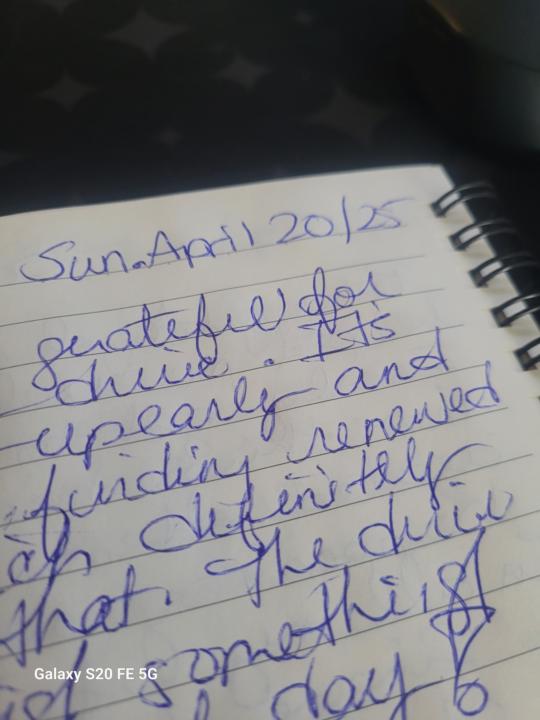 Sun. April 20/25
grateful for
drive. Its
up early and
finding renewed
definitely
that. The drive
something
day
Galaxy S20 FE 5G